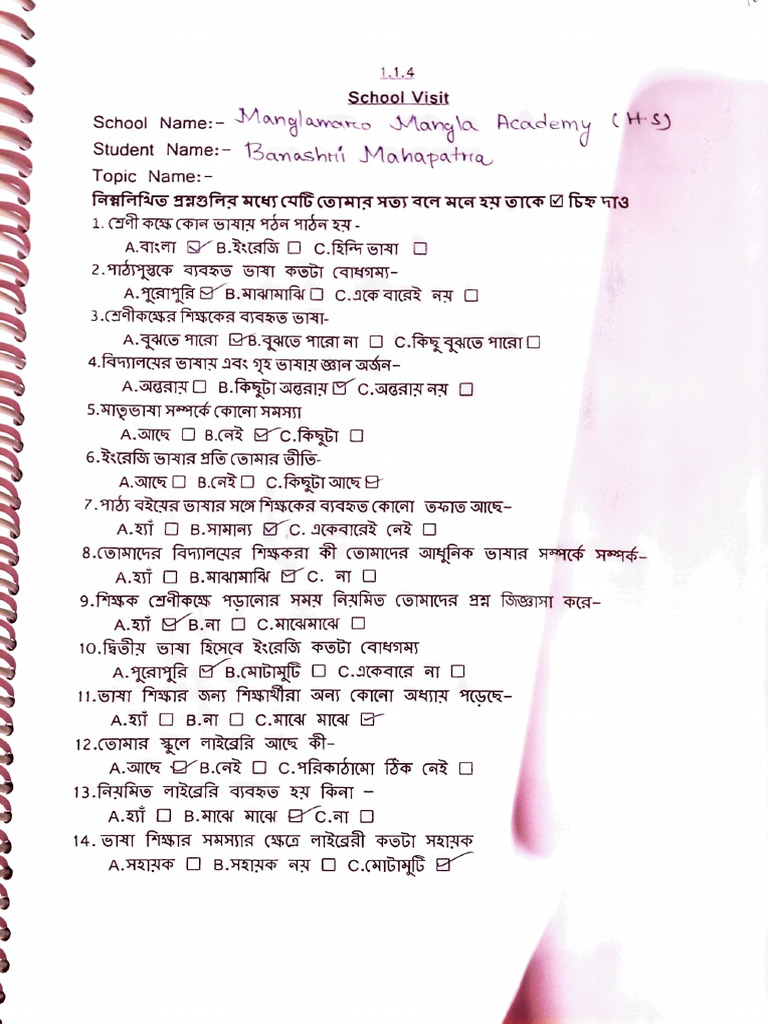 1.1.4
School Visit
School Name:- Manglamaro Mangla Academy (H-S)
Student Name:- Banashrii Mahapatra
Topic Name:-
নিম্নলিখিত প্রশ্নগুলির মধ্যে যেটি তোমার সত্য বলে মনে হয় তাকে ☑ চিহ্ন দাও
1. শ্রেণী কক্ষে কোন ভাষায় পঠন পাঠন হয় -
A.বাংলা ☑ B.ইংরেজি ☐ C.হিন্দি ভাষা ☐
2.পাঠ্যপুস্তকে ব্যবহৃত ভাষা কতটা বোধগম্য–
A.পুরোপুরি ☑ B.মাঝামাঝি ☐ C.একে বারেই নয় ☐
3.শ্রেণীকক্ষের শিক্ষকের ব্যবহৃত ভাষা-
A.বুঝতে পারো ☑ B.বুঝতে পারো না ☐ C.কিছু বুঝতে পারো ☐
4.বিদ্যালয়ের ভাষায় এবং গৃহ ভাষায় জ্ঞান অর্জন–
A.অন্তরায় ☐ B.কিছুটা অন্তরায় ☑ C.অন্তরায় নয় ☐
5.মাতৃভাষা সম্পর্কে কোনো সমস্যা
A.আছে ☐ B.নেই ☑ C.কিছুটা ☐
6.ইংরেজি ভাষার প্রতি তোমার ভীতি-
A.আছে ☐ B.নেই ☐ C.কিছুটা আছে ☑
7.পাঠ্য বইয়ের ভাষার সঙ্গে শিক্ষকের ব্যবহৃত কোনো তফাত আছে–
A.হ্যাঁ ☐ B.সামান্য ☑ C. একেবারেই নেই ☐
8.তোমাদের বিদ্যালয়ের শিক্ষকরা কী তোমাদের আধুনিক ভাষার সম্পর্কে সম্পর্ক–
A.হ্যাঁ ☐ B.মাঝামাঝি ☑ C. না ☐
9.শিক্ষক শ্রেণীকক্ষে পড়ানোর সময় নিয়মিত তোমাদের প্রশ্ন জিজ্ঞাসা করে–
A.হ্যাঁ ☑ B.না ☐ C.মাঝেমাঝে ☐
10.দ্বিতীয় ভাষা হিসেবে ইংরেজি কতটা বোধগম্য
A.পুরোপুরি ☑ B.মোটামুটি ☐ C.একেবারে না ☐
11.ভাষা শিক্ষার জন্য শিক্ষার্থীরা অন্য কোনো অধ্যায় পড়েছে–
A.হ্যাঁ ☐ B.না ☐ C.মাঝে মাঝে ☑
12.তোমার স্কুলে লাইব্রেরি আছে কী–
A.আছে ☑ B.নেই ☐ C.পরিকাঠামো ঠিক নেই ☐
13.নিয়মিত লাইব্রেরি ব্যবহৃত হয় কিনা –
A.হ্যাঁ ☐ B.মাঝে মাঝে ☑ C.না ☐
14. ভাষা শিক্ষার সমস্যার ক্ষেত্রে লাইব্রেরী কতটা সহায়ক
A.সহায়ক ☐ B.সহায়ক নয় ☐ C.মোটামুটি ☑